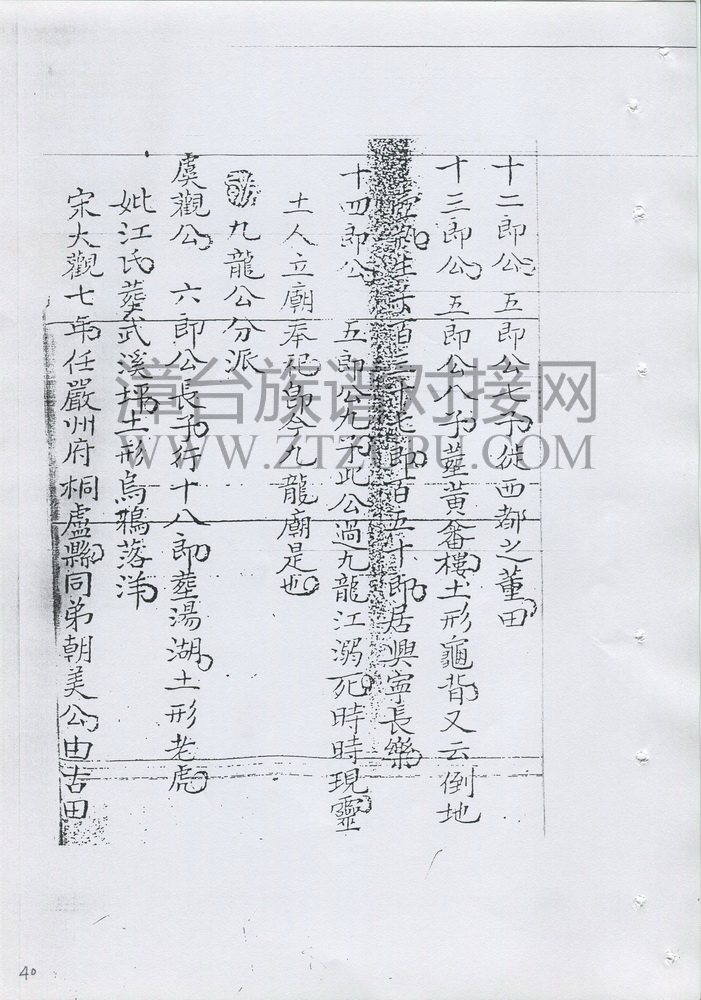 十二郎公 五郎公七子徙西都之董田
十三郎公 五郎公八子葬黃畬樓土形龜背又云倒地
百五十郎居興寧長樂
十四郎公 五郎公九子此公過九龍江溺死時時現靈
土人立廟奉祀即今九龍廟是也
九龍公分派
虞觀公 六郎公長子行十八郎葬湯湖土形老虎
妣江氏葬武溪坪土形烏鴉落洋
宋大觀七年任嚴州府桐盧縣同弟朝美公由古田
漳台族谱对接网
WWW.ZTZUPU.COM
40